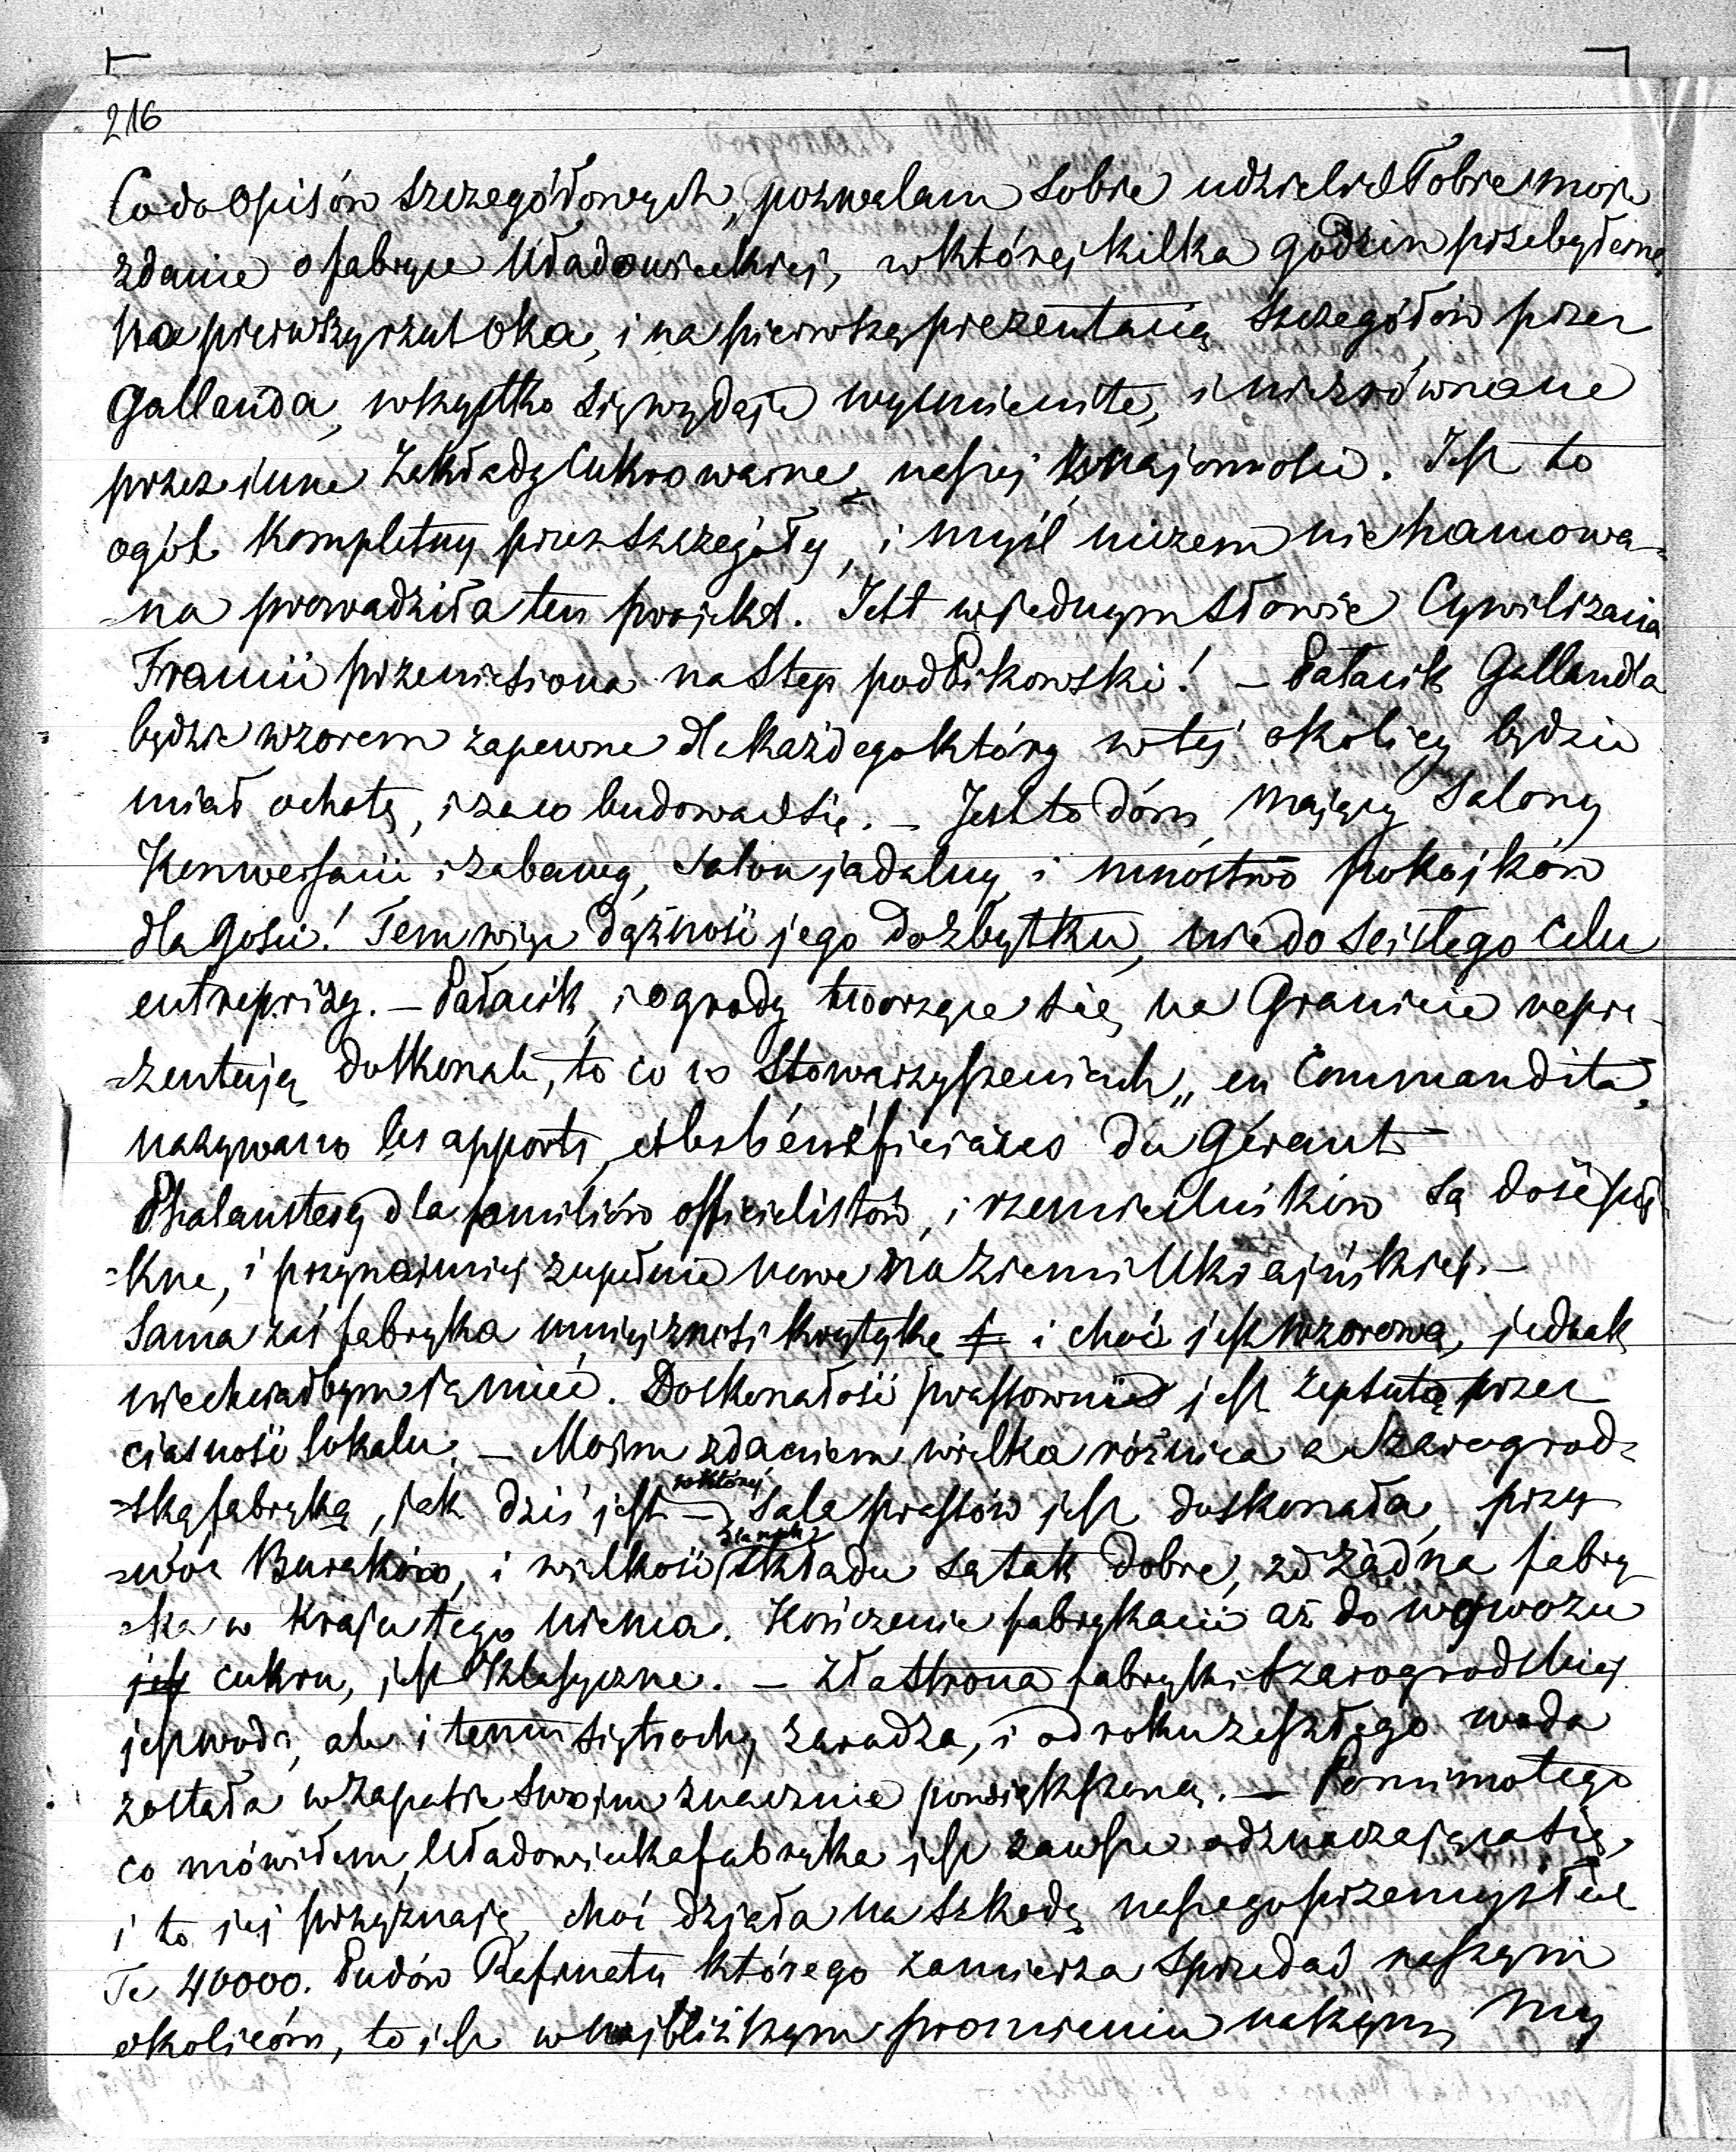 216
Co do opisów szczegółowych, pozwalam sobie udzielić Tobie moje
zdanie o fabryce Uładowieckiej, w której kilka godzin przebyłem.
Na pierwszy rzut oka, i na pierwszą prezentacią szczegółów przez
Gallanda, wszystko się wydaje wyśmienite, i niezrównane
przez inne zakłady cukrowarne, naszej znajomości. Jest to
ogół kompletny przez szczegóły, i myśl niczem niehamowa-
-na prowadziła ten projekt. Jest w jednym słowie Cywilizacia
Francii przeniesiona na Step pod Pikowski! – Pałacik Gallanda
będzie wzorem zapewne dla każdego który w tej okolicy będzie
miał ochotę, i za co budować się. – Jest to dóm mający Salony
Konwersacii i zabawy, salon jadalny i mnóstwo pokojków
dla Gości! Tem więc dążność jego do zbytku, nie do ścisłego celu
entreprizy. – Pałacik, i ogrody tworzące się na Granicie repre-
-zentują doskonale, to co w Stowarzyszeniach „en Commandita"
nazywano les apports, et les bénéficiaires du Gérant
Phalanstery dla familiów officielistów, i rzemieślników są dość pię-
-kne, i przynajmniej zupełnie nowe na ziemi Ukraińskiej. –
Sama zaś fabryka mniej znosi krytykę i choć jest wzorową, jednak
niechciałbym ją mieć. Doskonałość prassowni jest zepsutą przez
ciasność lokalu. – Moim zdaniem wielka różnica a Szarogrod-
-ską fabryką, jak dziś jest – w której sala prassów jest doskonała, przy-
-wóz Buraków, i wielkość składu są tak dobre, że żadna fabry-
-ka w kraju tego niema. Kończenie fabrykacii aż do wywozu
jest cukru, jest klasyczne. – Zła strona fabryki Szarogrodskiej
jest woda, ale i temu się trochę zaradza, i od roku zeszłego woda
została w zapasie swoim znacznie powiększoną. – Pomimo tego
co mówiłem, Uładowiecka fabryka jest zawsze odznaczająca się,
i to jej przyznaję, choć działa na szkodę naszego przemysłu
Te 40000. Pudów Rafinatu którego zamierza sprzedać naszym
okolicóm, to jest w najbliższym promieniu naszym, my